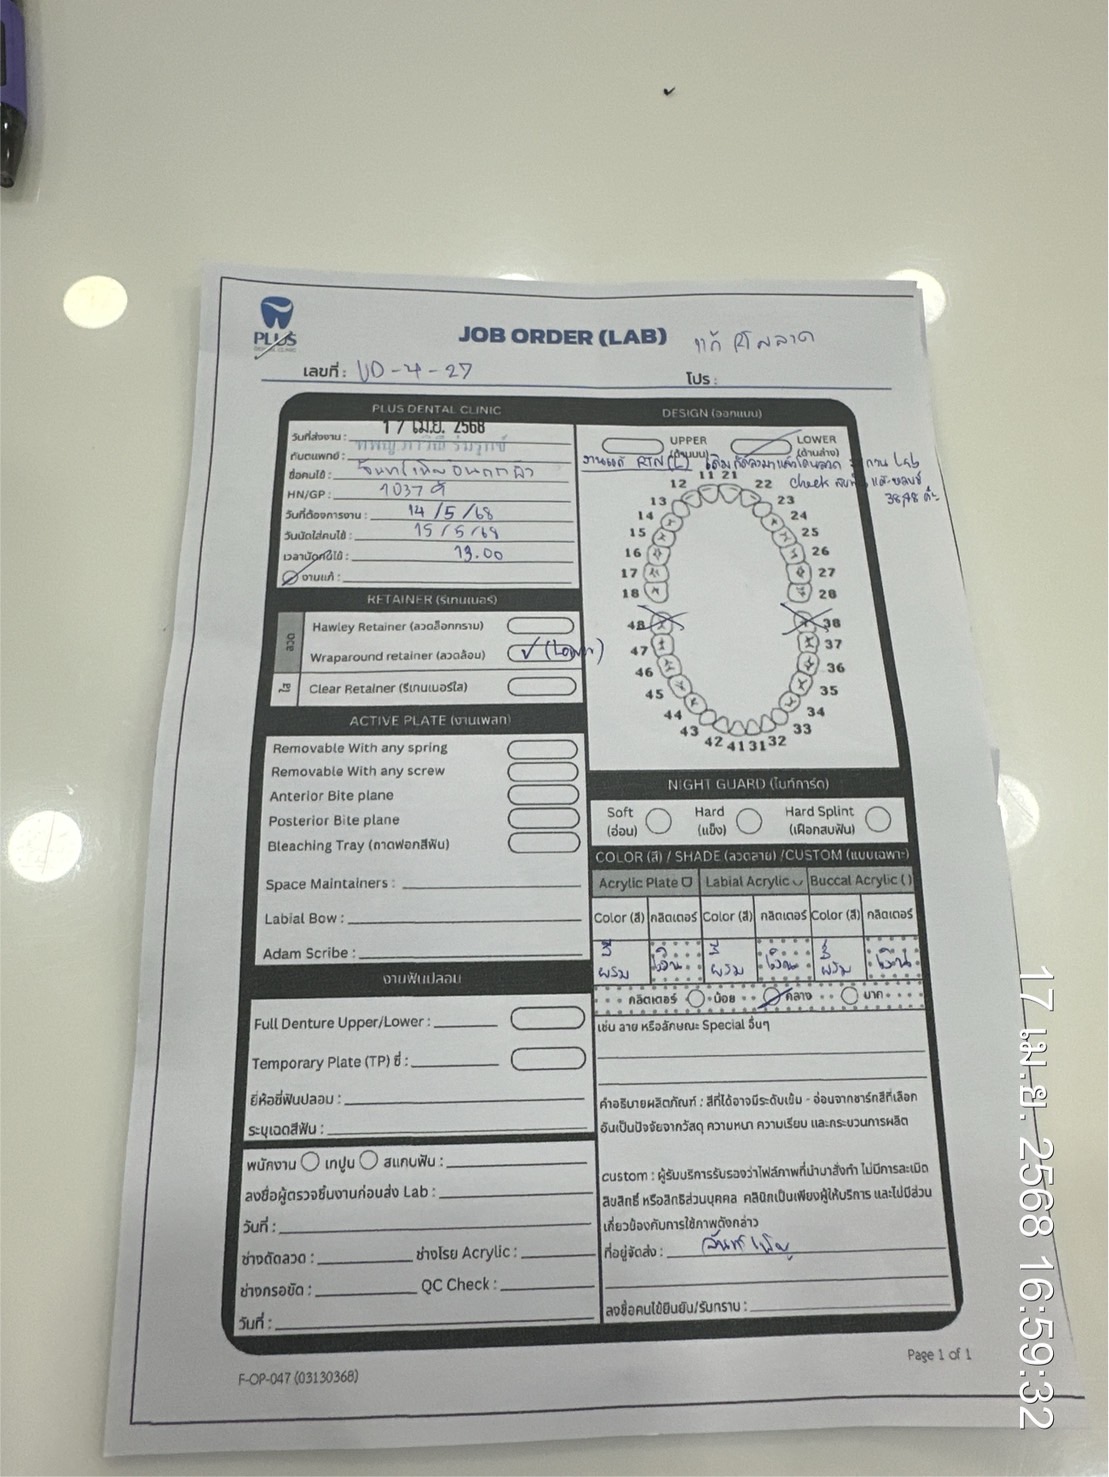 PLUS
DENTAL CLINIC
JOB ORDER (LAB)
แก้
เลขที่ : UD-4-27
โปร :
PLUS DENTAL CLINIC
วันที่ส่งงาน : 17 เม.ย. 2568
ทันตแพทย์ :
ชื่อคนไข้ :
HN/GP :
วันที่ต้องการงาน : 14/5/68
วันนัดใส่คนไข้ : 15/5/68
เวลานัดคนไข้ : 13.00
งานแก้ :
RETAINER (รีเทนเนอร์)
ลวด
Hawley Retainer (ลวดล็อกกราม)
Wraparound retainer (ลวดล้อม) ✓ (Lower)
ใส
Clear Retainer (รีเทนเนอร์ใส)
ACTIVE PLATE (งานเพลท)
Removable With any spring
Removable With any screw
Anterior Bite plane
Posterior Bite plane
Bleaching Tray (ถาดฟอกสีฟัน)
Space Maintainers :
Labial Bow :
Adam Scribe :
งานฟันปลอม
Full Denture Upper/Lower :
Temporary Plate (TP) ซี่ :
ยี่ห้อซี่ฟันปลอม :
ระบุเฉดสีฟัน :
พนักงาน เทปูน สแกนฟัน :
ลงชื่อผู้ตรวจชิ้นงานก่อนส่ง Lab :
วันที่ :
ช่างดัดลวด : ช่างโรย Acrylic :
ช่างกรอขัด : QC Check :
วันที่ :
DESIGN (ออกแบบ)
UPPER (ด้านบน) LOWER (ด้านล่าง)
งานแก้ RTN (L) Lab
check และ
38,48
11 21
12 22
13 23
14 24
15 25
16 26
17 27
18 28
48 38
47 37
46 36
45 35
44 34
43 33
42 41 31 32
NIGHT GUARD (ไนท์การ์ด)
Soft (อ่อน) Hard (แข็ง) Hard Splint (เฝือกสบฟัน)
COLOR (สี) / SHADE (ลวดลาย) /CUSTOM (แบบเฉพาะ)
Acrylic Plate Labial Acrylic Buccal Acrylic ( )
Color (สี) กลิตเตอร์ Color (สี) กลิตเตอร์ Color (สี) กลิตเตอร์
สีผสม เงิน สีผสม เงิน สีผสม เงิน
กลิตเตอร์ น้อย กลาง มาก
เช่น ลาย หรือลักษณะ Special อื่นๆ
คำอธิบายผลิตภัณฑ์ : สีที่ได้อาจมีระดับเข้ม - อ่อนจากชาร์ทสีที่เลือก
อันเป็นปัจจัยจากวัสดุ ความหนา ความเรียบ และกระบวนการผลิต
custom : ผู้รับบริการรับรองว่าไฟล์ภาพที่นำมาสั่งทำ ไม่มีการละเมิด
ลิขสิทธิ์ หรือสิทธิส่วนบุคคล คลินิกเป็นเพียงผู้ให้บริการ และไม่มีส่วน
เกี่ยวข้องกับการใช้ภาพดังกล่าว
ที่อยู่จัดส่ง : จันทร์เพ็ญ
ลงชื่อคนไข้ยืนยัน/รับทราบ :
F-OP-047 (03130368)
Page 1 of 1
17 เม.ย. 2568 16:59:32